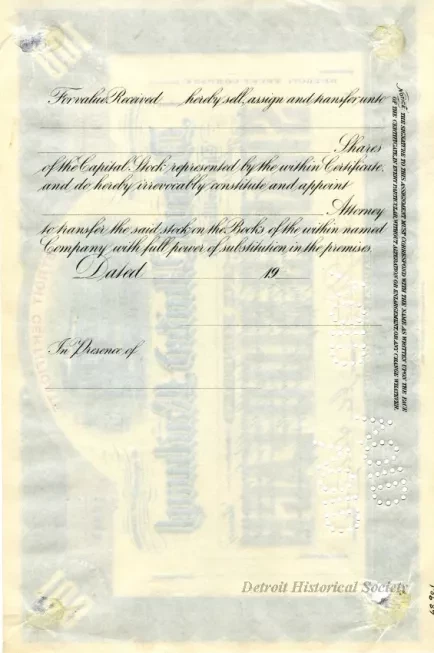 For value Received hereby sell, assign and transfer unto
Shares
of the Capital Stock represented by the within Certificate,
and do hereby irrevocably constitute and appoint
Attorney
to transfer the said stock on the Books of the within named
Company with full power of substitution in the premises.
Dated 19
In Presence of
NOTICE. THE SIGNATURE TO THIS ASSIGNMENT MUST CORRESPOND WITH THE NAME AS WRITTEN UPON THE FACE
OF THE CERTIFICATE, IN EVERY PARTICULAR, WITHOUT ALTERATION OR ENLARGEMENT, OR ANY CHANGE WHATEVER.
Detroit Historical Society